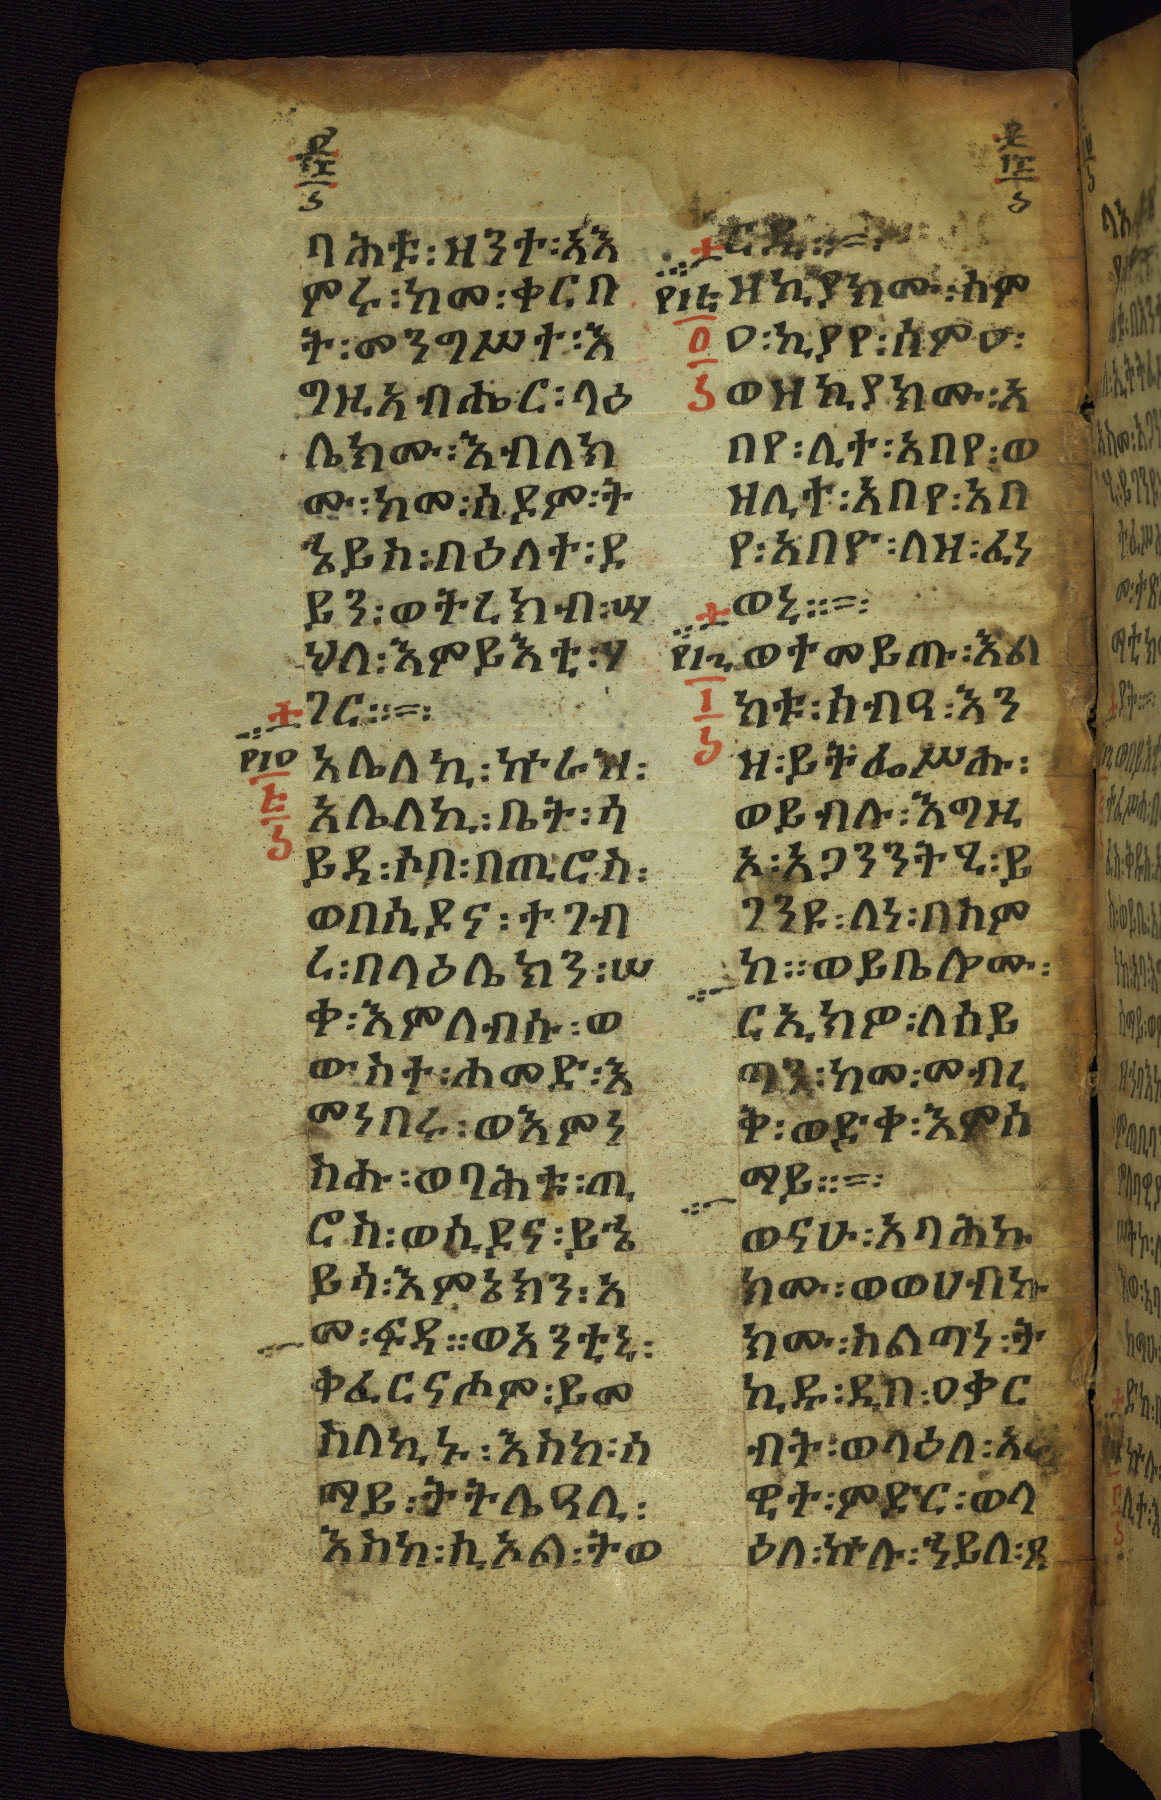 ባሕቱ፡ዝንተ፡አእ
ምሩ፡ከመ፡ቀርበ
ት፡መንግሥተ፡እ
ግዚአብሔር፡ላዕ
ሌክሙ፡እብለክ
ሙ፡ከመ፡ሰዶም፡ት
ኄይስ፡በዕለተ፡ደ
ይን፡ወትረክብ፡ሣ
ህለ፡እምይእቲ፡ሃ
ገር።=፡
አሌለኪ፡ኮራዝ፡
አሌለኪ፡ቤት፡ሳ
ይዳ፡ሶበ፡በጢሮስ፡
ወበሲዶና፡ተገብ
ረ፡በላዕሌክን፡ሠ
ቀ፡እምለብሱ፡ወ
ውስተ፡ሐመድ፡እ
መነበሩ፡ወእምነ
ስሑ፡ወባሕቱ፡ጢ
ሮስ፡ወሲዶና፡ይኄ
ይሳ፡እምኔክን፡አ
መ፡ፍዳ።ወአንቲኒ፡
ቅፈርናሖም፡ይመ
ስለኪኑ፡እስከ፡ሰ
ማይ፡ትትሌዓሊ፡
እስከ፡ሲኦል፡ትወ
ርዲ።=፡
ዘኪያክሙ፡ሰም
ዐ፡ኪያየ፡ሰምዐ፡
ወዘኪያክሙ፡አ
በየ፡ሊተ፡አበየ፡ወ
ዘሊተ፡አበየ፡አበ
የ፡አበዮ፡ለዘ፡ፈነ
ወኒ።=፡
ወተመይጡ፡እል
ክቱ፡ሰብዓ፡እን
ዘ፡ይትፌሥሑ፡
ወይብሉ፡እግዚ
ኦ፡አጋንንትሂ፡ይ
ገንዩ፡ለነ፡በስም
ከ።ወይቤሎሙ፡
ርኢክዎ፡ለሰይ
ጣን፡ከመ፡መብረ
ቅ፡ወድቀ፡እምሰ
ማይ።=፡
ወናሁ፡አባሕኩ
ክሙ፡ወወሀብኩ
ክሙ፡ስልጣነ፡ት
ኪዱ፡ዲበ፡ዐቃር
ብት፡ወላዕለ፡አራ
ዊተ፡ምድር፡ወላ
ዕለ፡ኵሉ፡ኀይለ፡ጸ